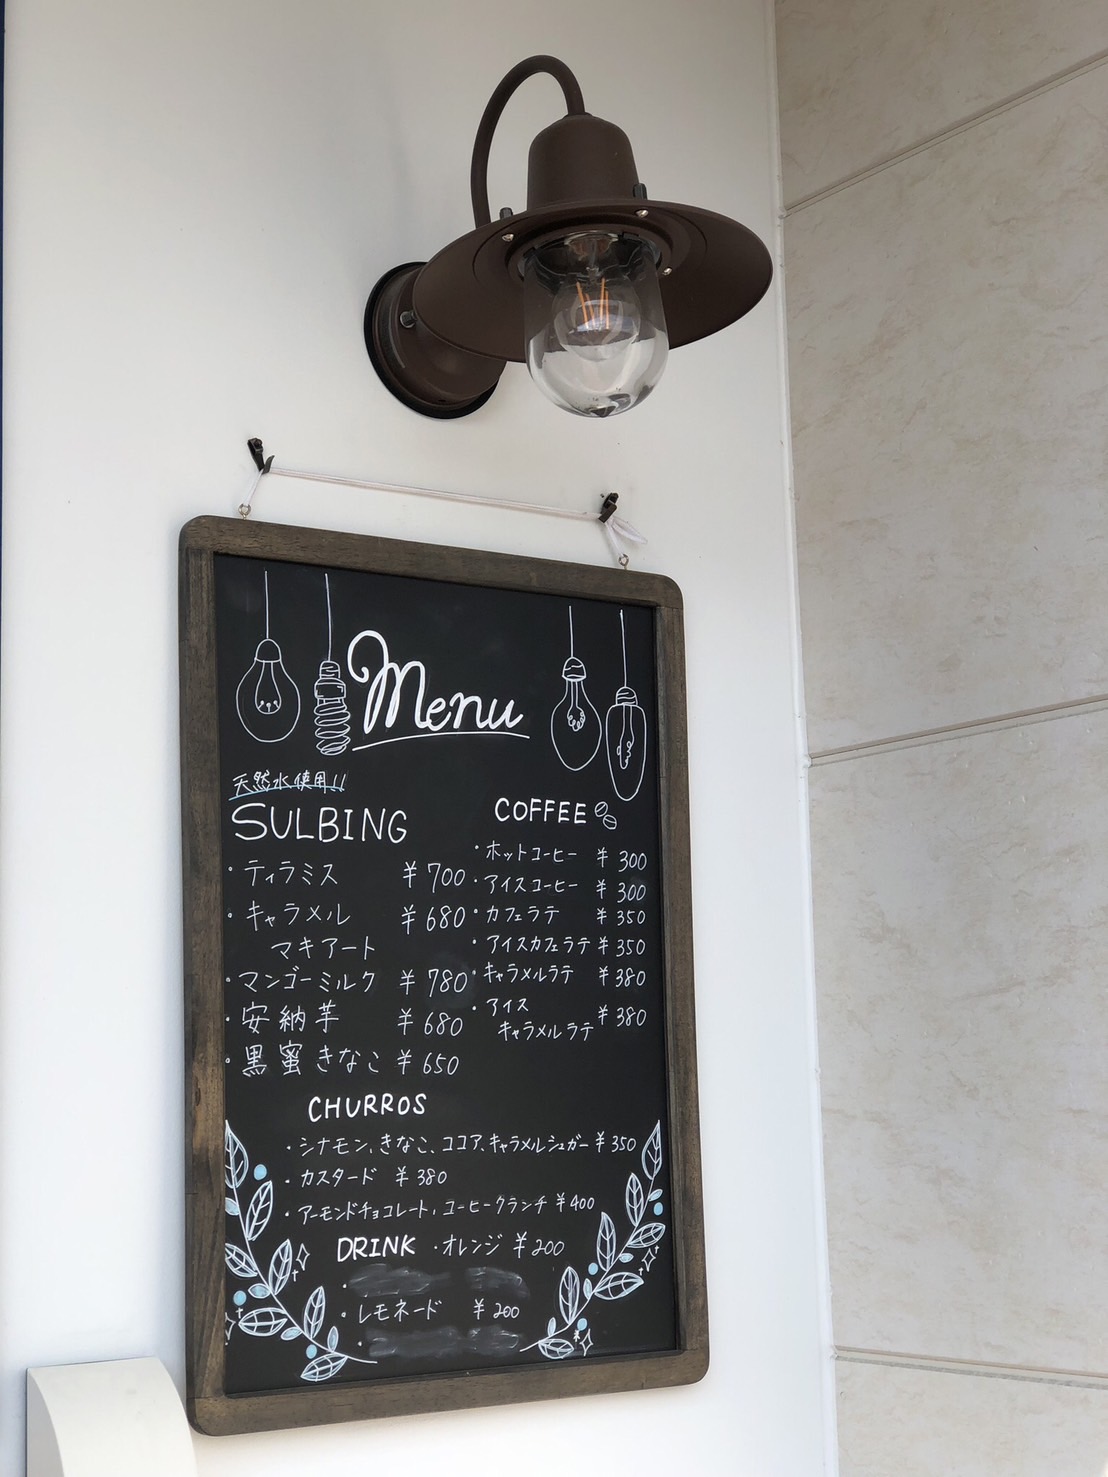 Menu
天然水使用!!
SULBING
・ティラミス ¥700
・キャラメル ¥680
マキアート
・マンゴーミルク ¥780
・安納芋 ¥680
・黒蜜きなこ ¥650
COFFEE
・ホットコーヒー ¥300
・アイスコーヒー ¥300
・カフェラテ ¥350
・アイスカフェラテ ¥350
・キャラメルラテ ¥380
・アイス
キャラメルラテ ¥380
CHURROS
・シナモン、きなこ、ココア、キャラメルシュガー ¥350
・カスタード ¥380
・アーモンドチョコレート、コーヒークランチ ¥400
DRINK ・オレンジ ¥200
・レモネード ¥200